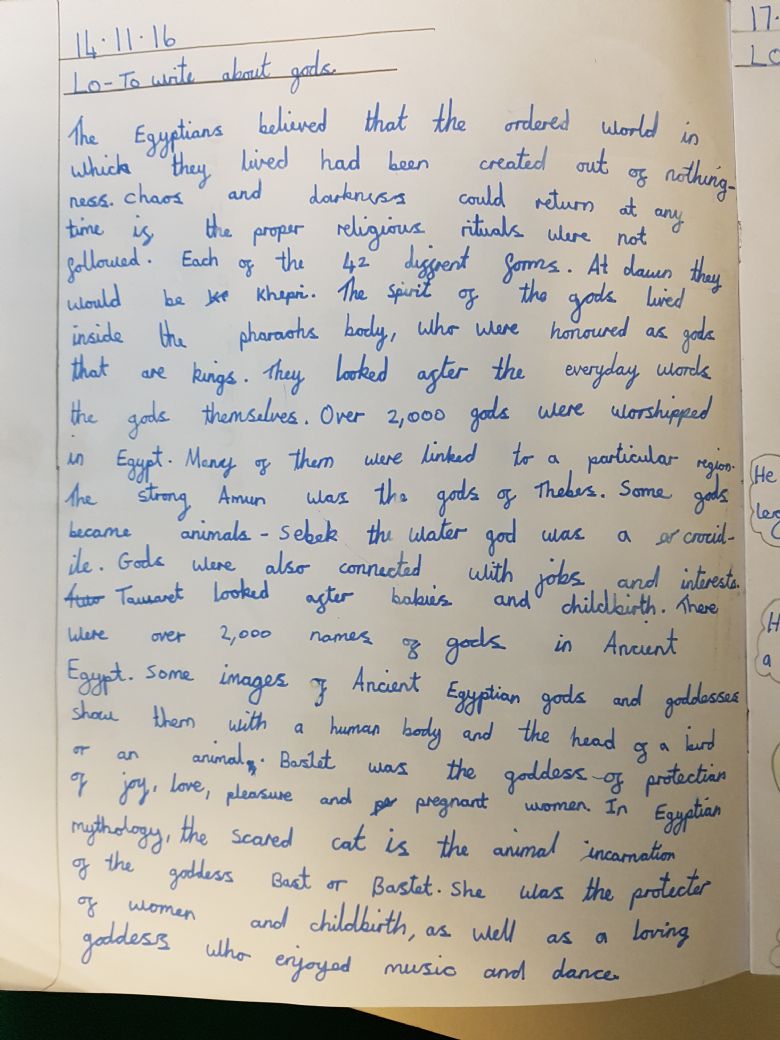 14.11.16
LO-To write about gods.
The Egyptians believed that the ordered world in
which they lived had been created out of nothing-
ness. chaos and darkness could return at any
time if the proper religious rituals were not
followed. Each of the 42 diffrent forms. At dawn they
would be Khepri. The spirit of the gods lived
inside the pharaohs body, who were honoured as gods
that are kings. They looked after the everyday words
the gods themselves. Over 2,000 gods were worshipped
in Egypt. Many of them were linked to a particular region.
The strong Amun was the gods of Thebes. Some gods
became animals - Sebek the water god was a crocid-
ile. Gods were also connected with jobs and interests.
Tawaret looked after babies and childbirth. There
were over 2,000 names of gods in Ancient
Egypt. Some images of Ancient Egyptian gods and goddesses
show them with a human body and the head of a bird
or an animal. Bastet was the goddess of protection
of joy, love, pleasure and pregnant women. In Egyptian
mythology, the scared cat is the animal incarnation
of the goddess Bast or Bastet. She was the protecter
of women and childbirth, as well as a loving
goddess who enjoyed music and dance.
17.
LO
He
H
a